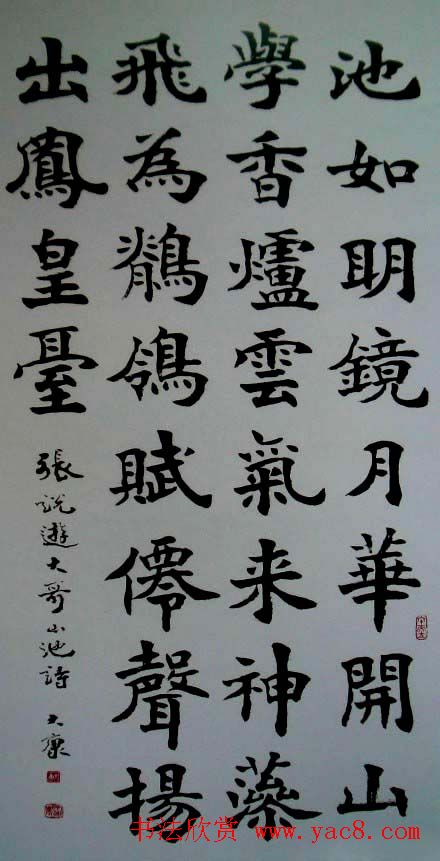 池如明鏡月華開山
學香爐雲氣来神藻
飛為鶺鴒賦僊聲揚
出鳳皇臺
張説遊大哥山池詩 大康
书法欣赏 www.yac8.com